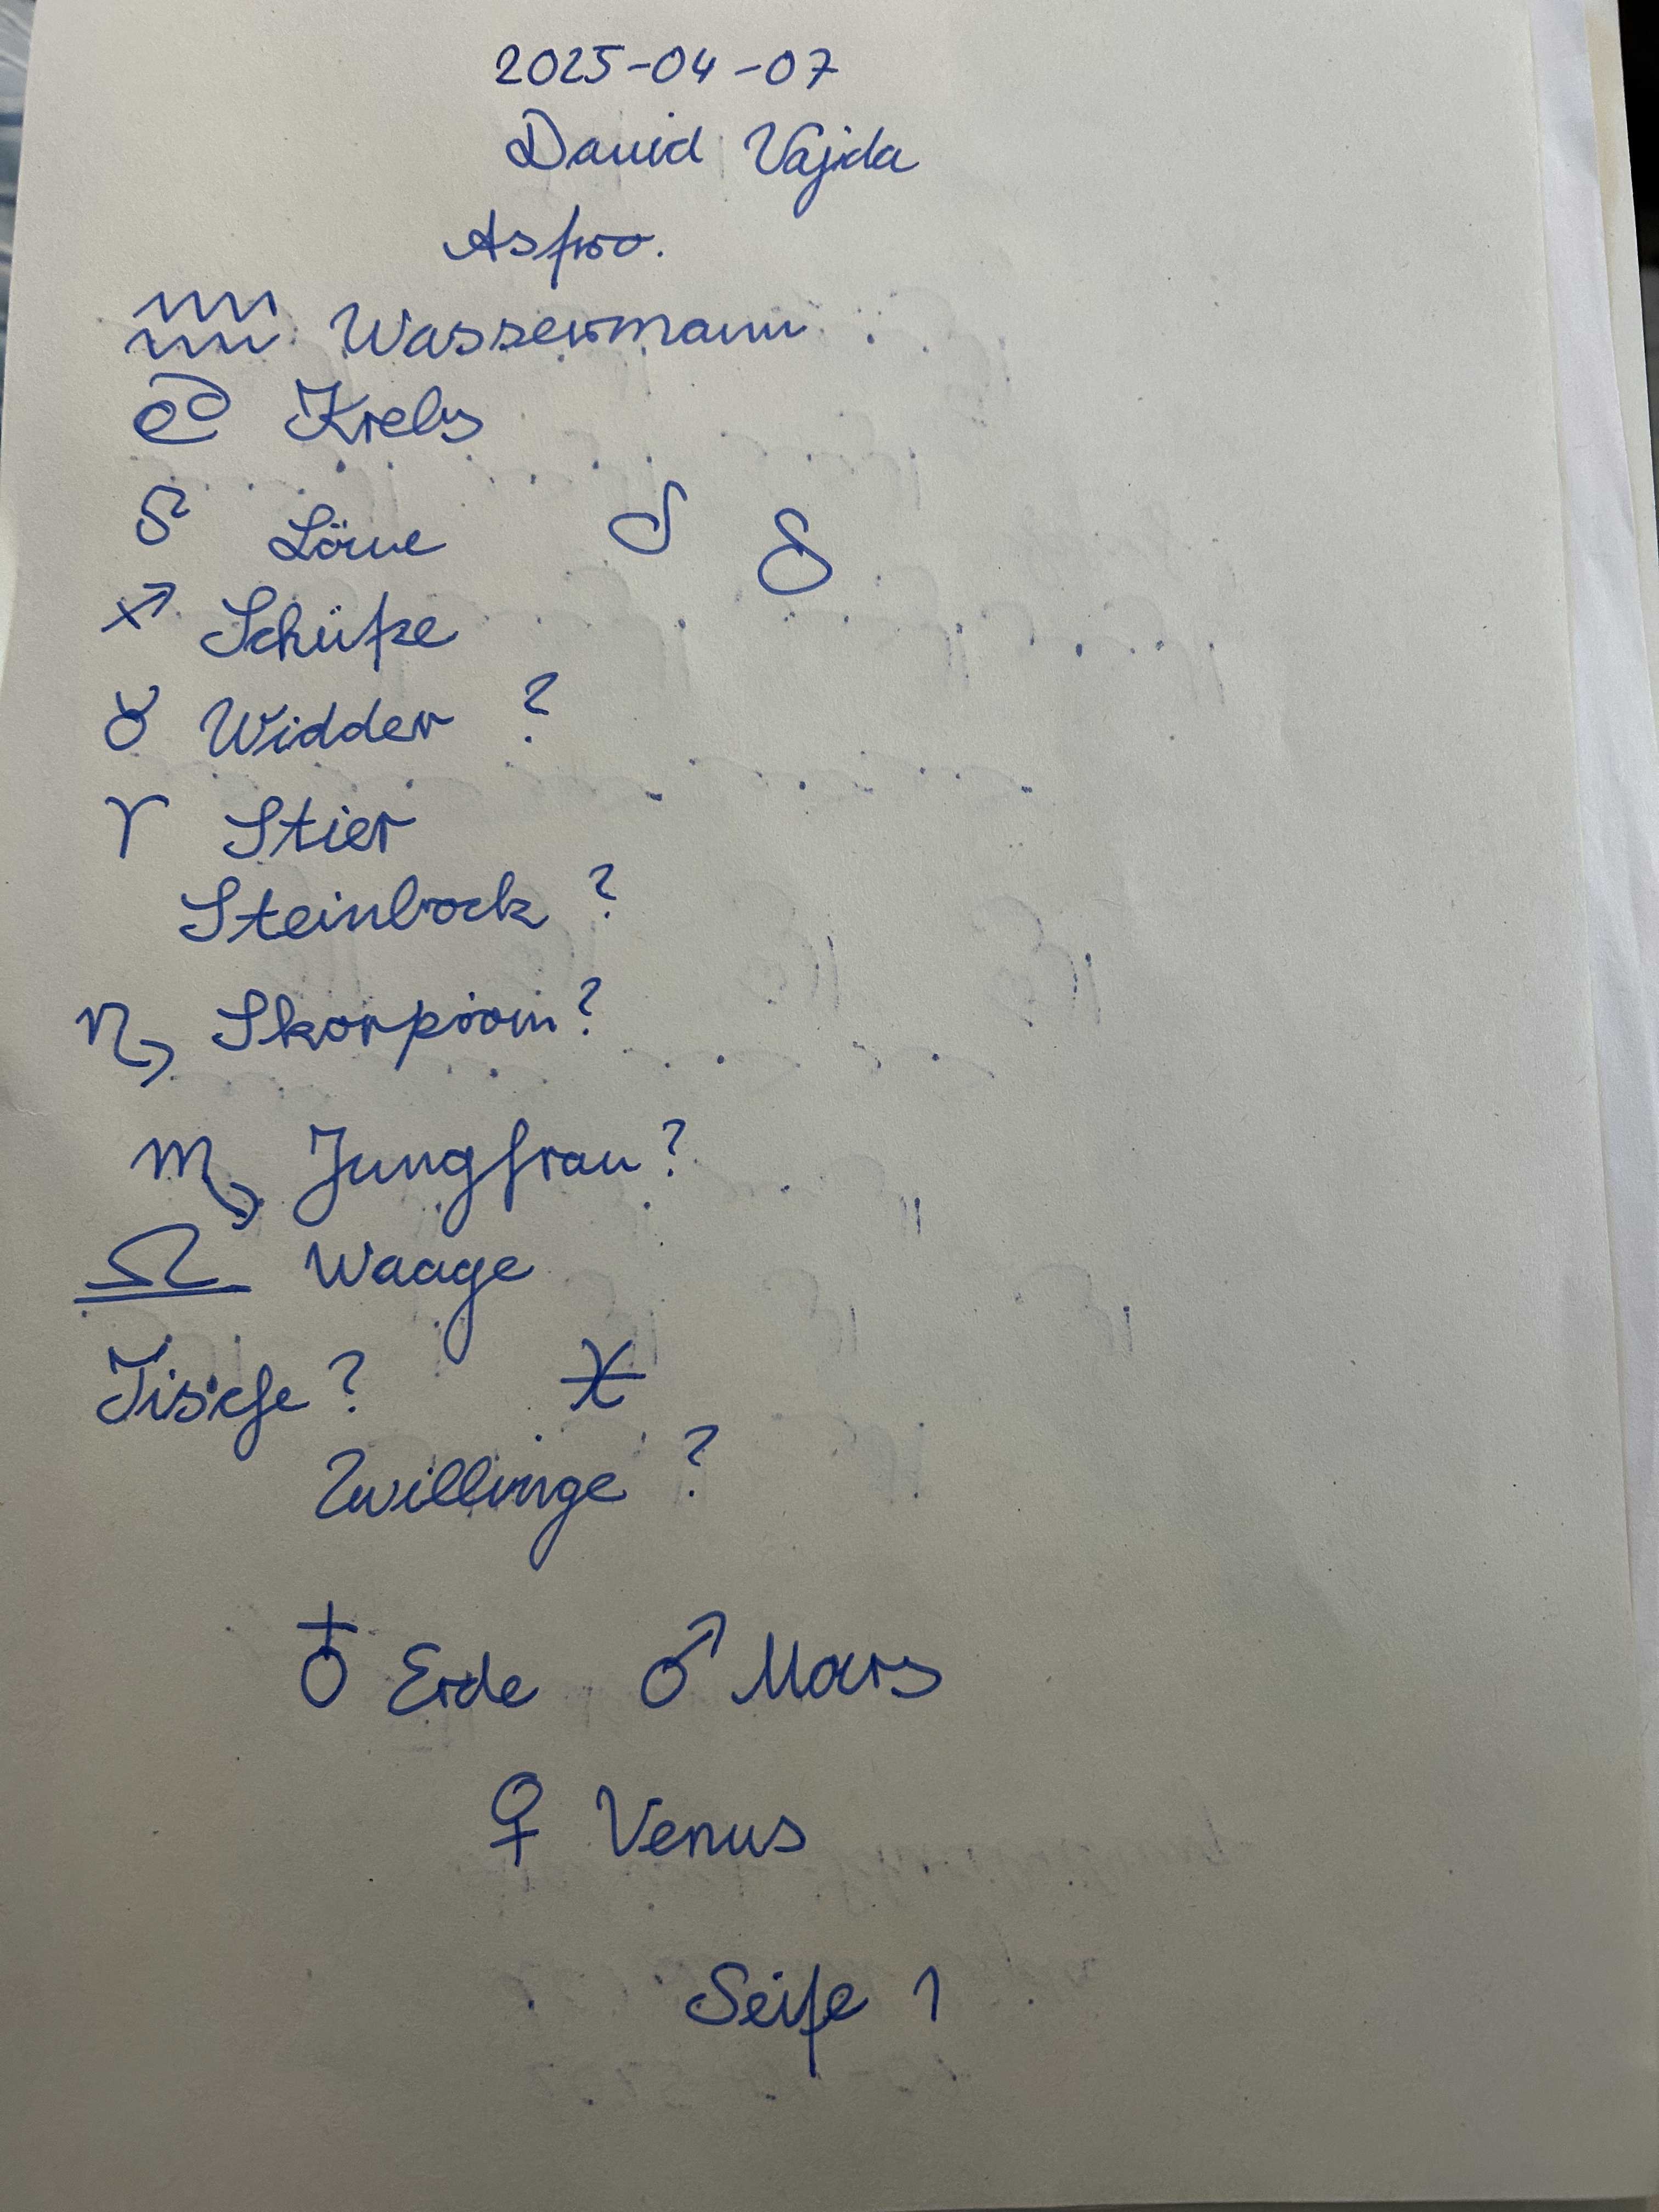 2025-04-07
David Vajda
Astro.
♒ Wassermann
♋ Krebs
Löwe
♐ Schütze
♉ Widder ?
♈ Stier
Steinbock ?
Skorpion?
Jungfrau?
♎ Waage
Fische ? ♓
Zwillinge ?
♁ Erde ♂ Mars
♀ Venus
Seite 1